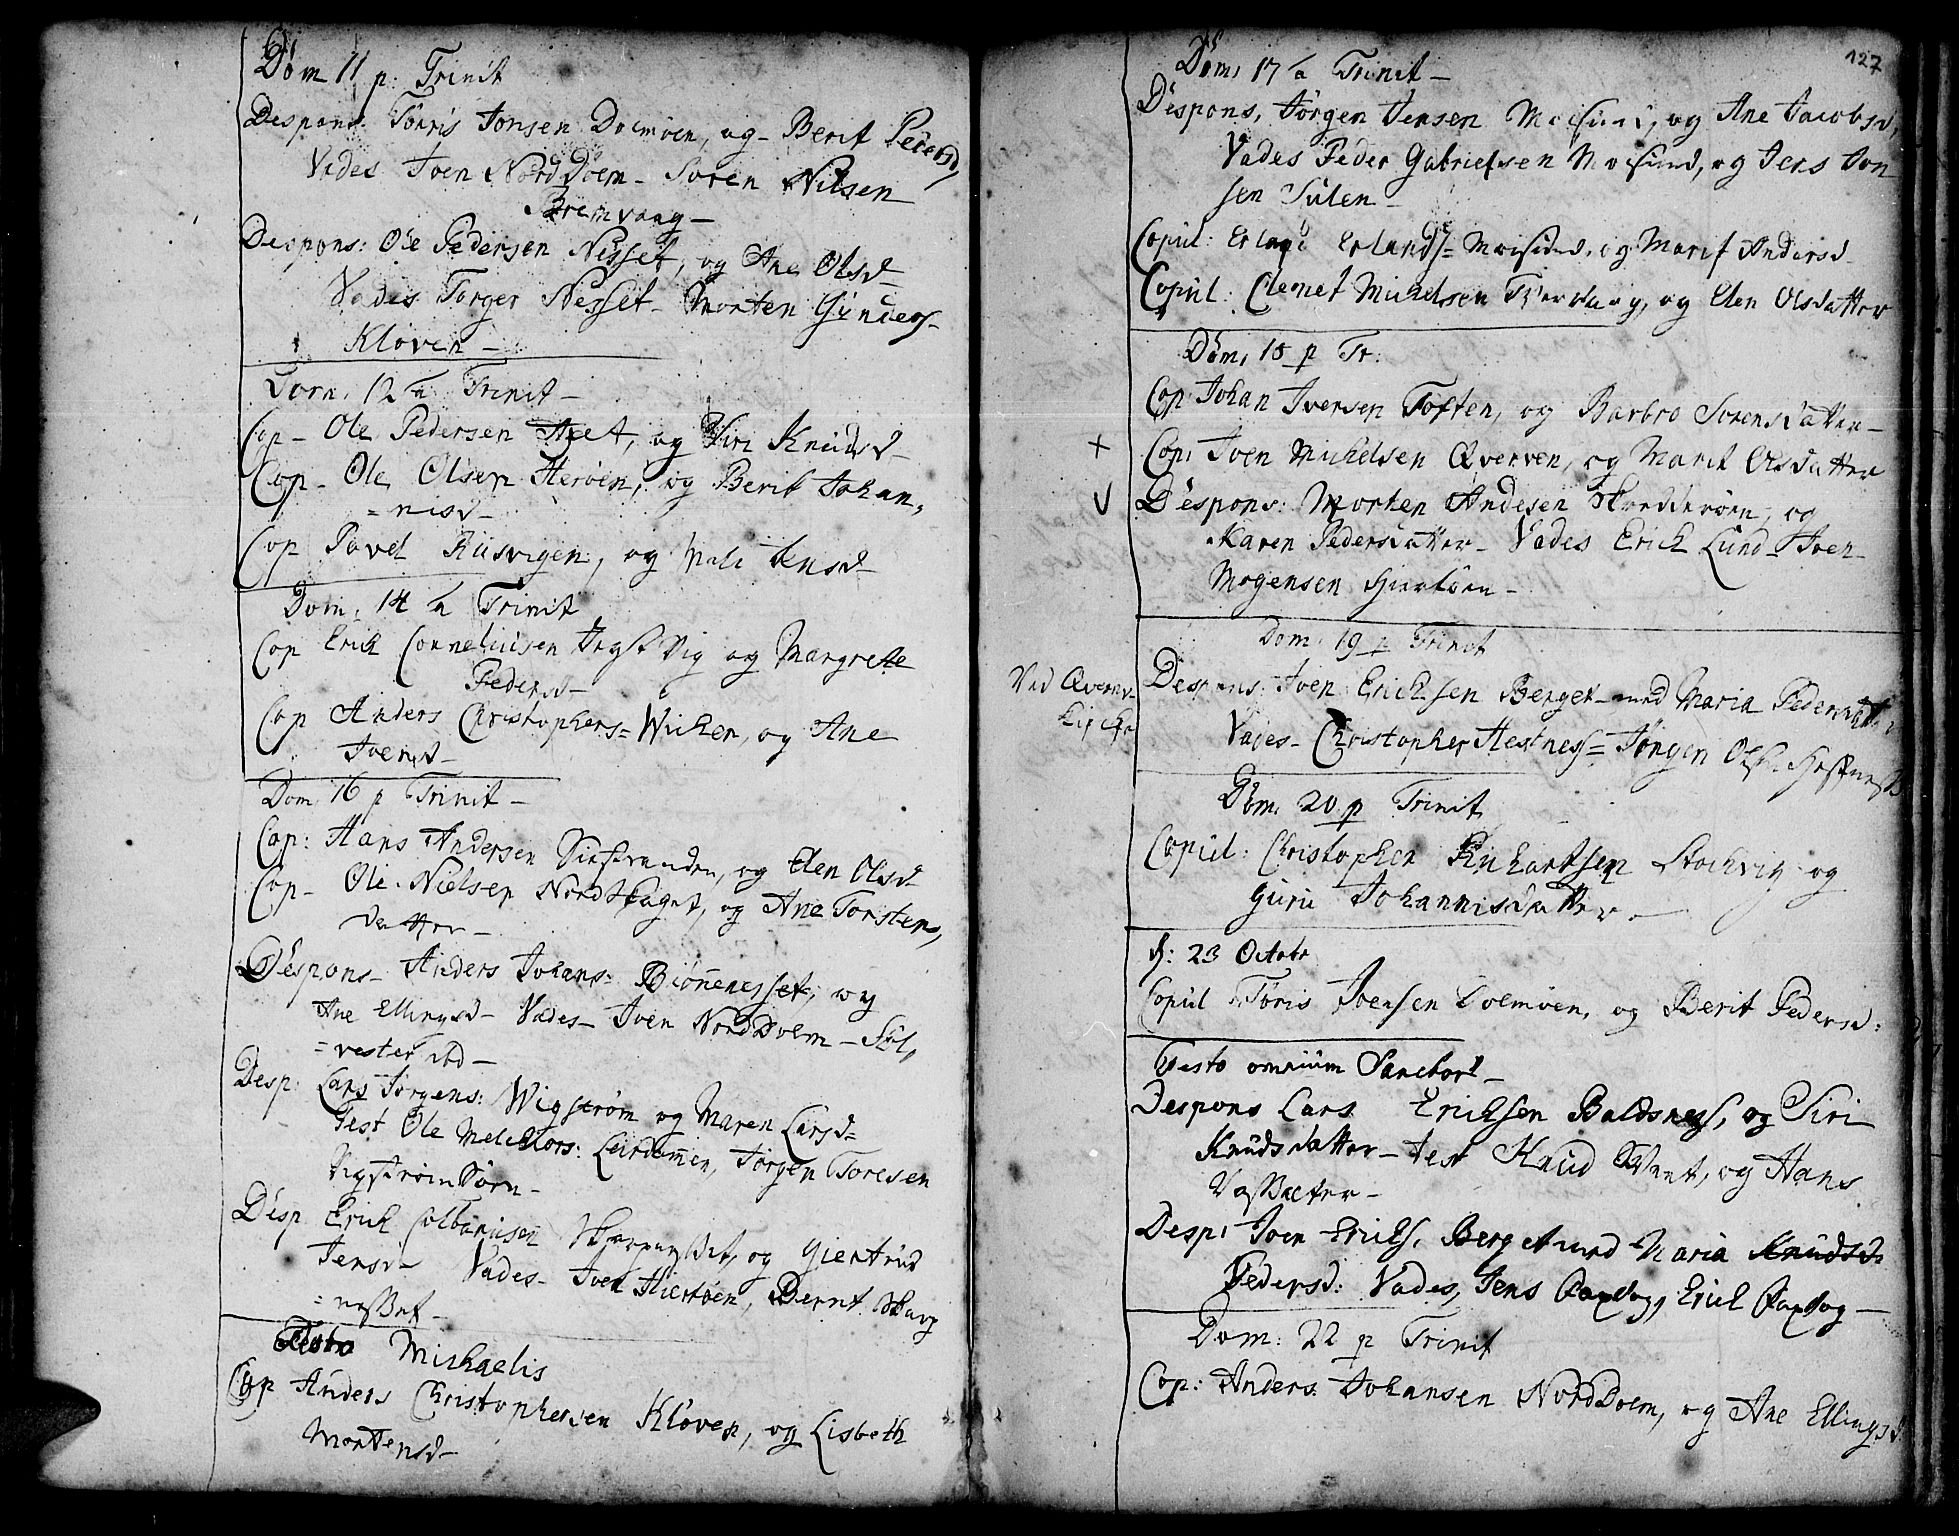 Dom 11 p: Trinit
Despons: Torris Jonsen Doemöen, og Berit Pedersd,
Vades Joen NordDoem - Soren Nilsen
Bremvaag -
Despons: Ole Pedersen Nesset, og Ane Olsd -
Vades Torger Nesset - Morten Gunders-
Kloven -
Dom. 12 a Trinit -
Cop - Ole Pedersen og Siri Knudsd -
Cop - Ole Olsen Heröen, og Berit Johan,
= nisd -
Cop Povel Riisvigen, og Mali Ensd -
Dom. 14 a Trinit
Cop Erich Corneliusen Vig og Margrete
Pedersd -
Cop Anders Christophers= Wichen, og Ane
Joensd -
Dom 16 p Trinit -
Cop: Hans Andersen og Elen Olsd -
Cop - Ole Nielsen Nordskaget, og Ane Torstens,
datter -
Despons - Anders Johans= Biönnesset, og
Ane Ellingsd - Vades - Joen NordDoem - Syl,
= vester ibd -
Desp: Lars Jörgens: Wigström og Maren Larsd=
Test Ole Melchiors: Leirdommen, Jörgen Toresen
Vigström Sörn -
Desp Erich Colbanisen og Giertrud
Jensd - Vades - Joen Hiertöen, Bernt Skarp
= nesset -
Festo Michaelis
Cop Anders Christophersen Kloven, og Lisbeth
Mortensd -
127
Dom, 17 a Trinit -
Despons, Jörgen Jensen Moesund, og Ane Jacobsd,
Vades Peder Gabrielsen Moesund, og Jens Jon
sen Sulen -
Copul: Erland Erlands= Moesund, og Marit Andersd -
Copul: Clemet Michelsen og Elen Olsdatter
Dom, 18 p Tr:
Cop: Johan Iversen Toften, og Barbro Sorensdatter -
+ Cop: Joen Michelsen Qverven, og Marit Olsdatter
V Despons: Morten Andesen og
Karen Pedersdatter - Vades Erich Lund - Joen
Mogensen Hiertöen -
Dom: 19 p Trinit
Ved Qvern=
kircke
Despons: Joen Erichsen Berget - med Maria Pedersdatter
Vades - Christopher Hestness= Jörgen Ols=
Dom, 20 p Trinit
Copul: Christopher Richartsen Stochvig og
Guru Johannisdatter -
d: 23 Octobr
Copul Toris Joensen Doemöen, og Berit Pedersd:
Festo omnium Sanctor -
Despons Lars Erichsen Baldsness, og Siri
Knudsdatter - test Knud og Hans
Desp: Joen Erichs, Berget med Maria Knudsd:
Pedersd: Vades, Jens Erich
Dom: 22 p Trinit
Cop: Anders Johansen NordDoem, og Ane Ellingsd